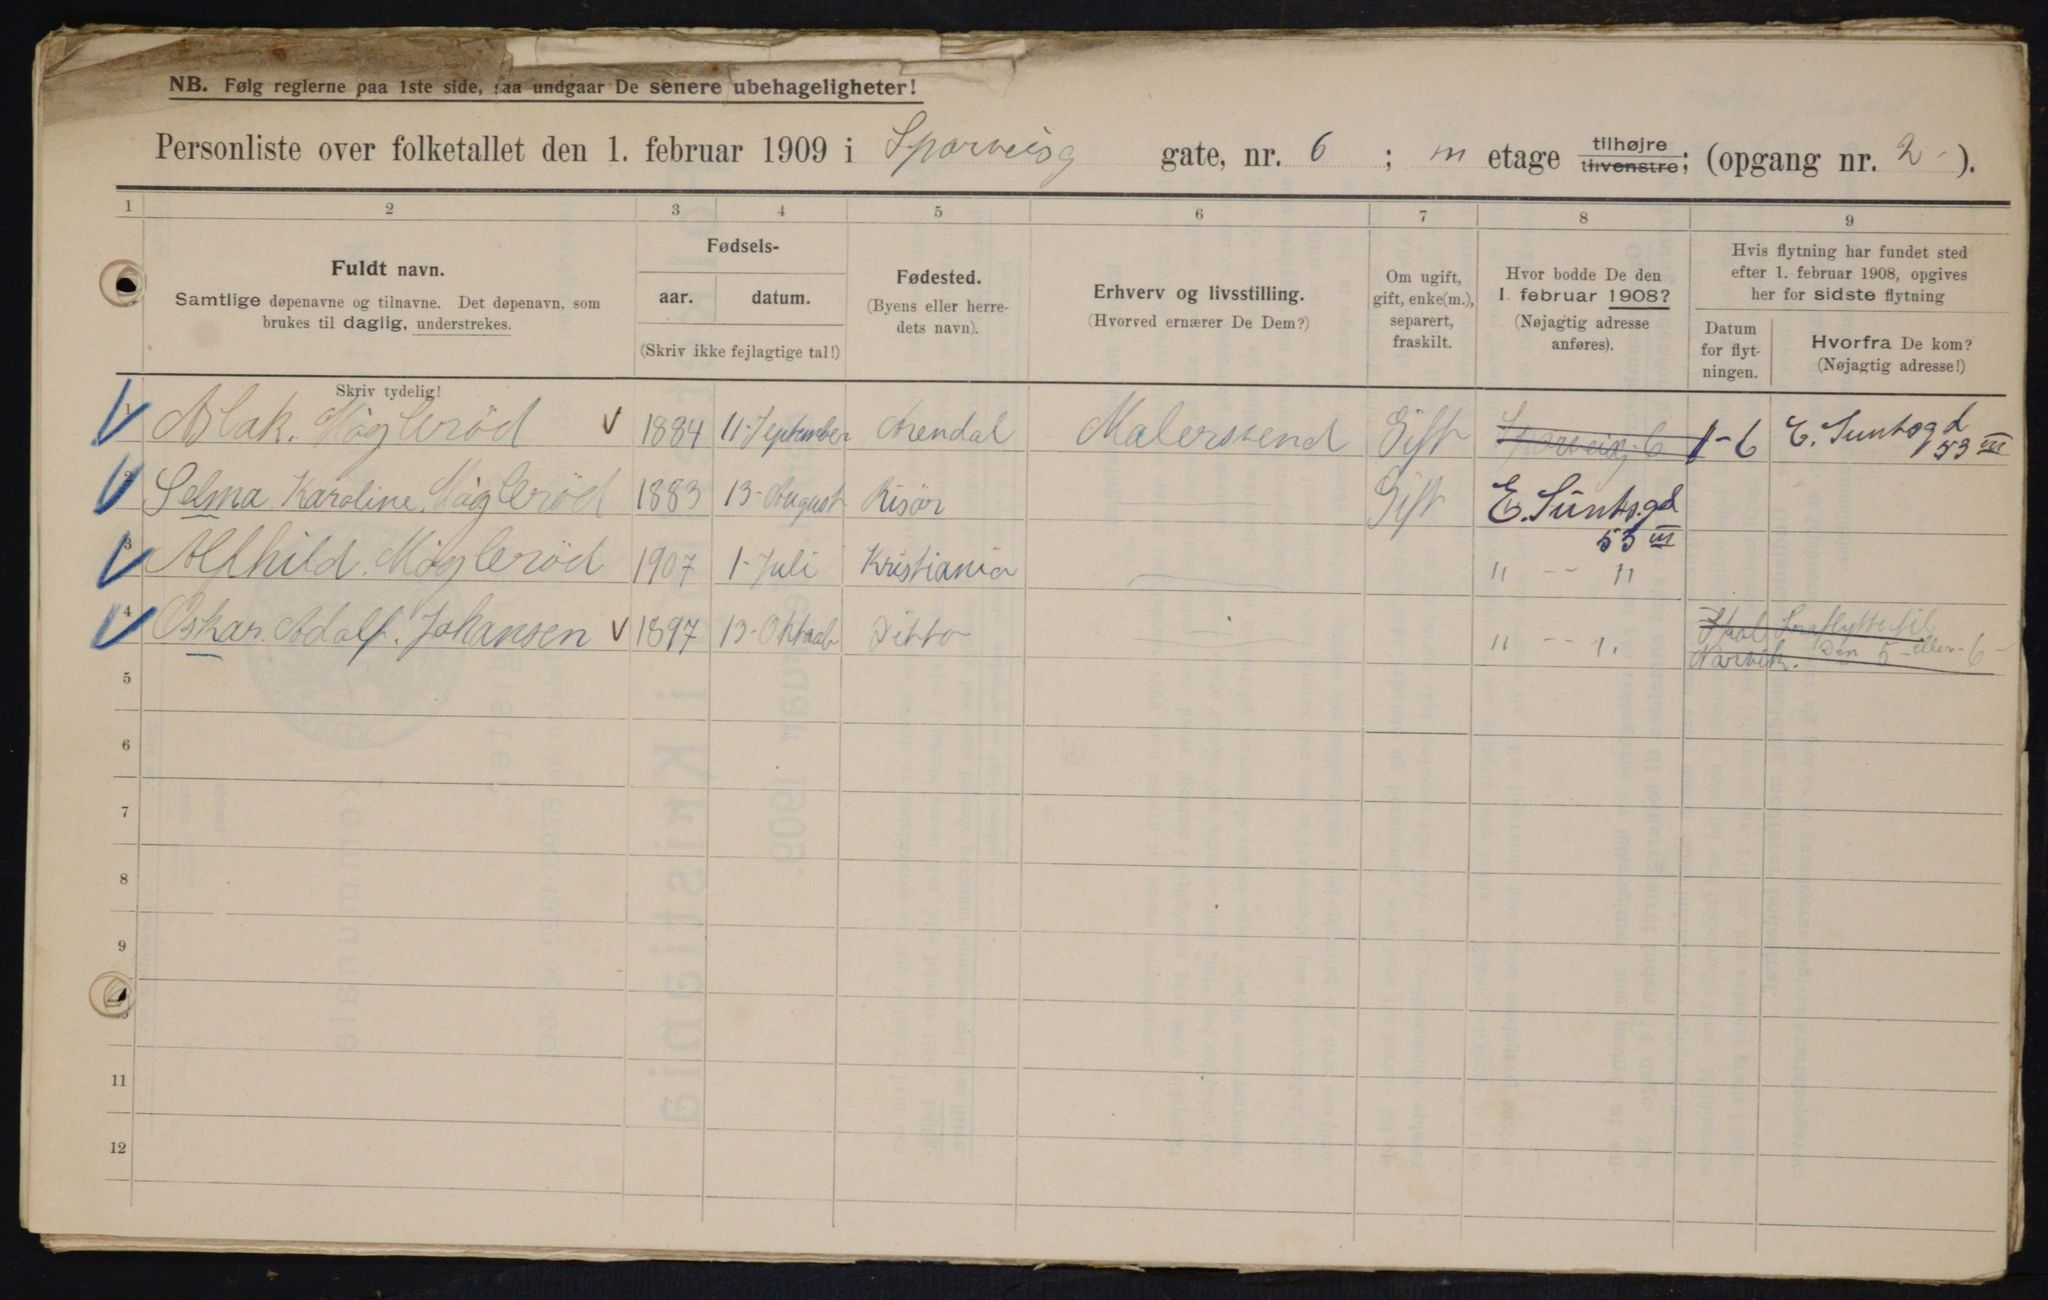 NB. Følg reglerne paa 1ste side, saa undgaar De senere ubehageligheter!
Personliste over folketallet den 1. februar 1909 i Sporveisg gate, nr. 6 ; III etage tilhøjre tilvenstre; (opgang nr. 2 ).
1 2 3 4 5 6 7 8 9
Fuldt navn.
Samtlige døpenavne og tilnavne. Det døpenavn, som
brukes til daglig, understrekes.
Skriv tydelig!
Fødsels-
aar. datum.
(Skriv ikke fejlagtige tal!)
Fødested.
(Byens eller herre-
dets navn).
Erhverv og livsstilling.
(Hvorved ernærer De Dem?)
Om ugift,
gift, enke(m.),
separert,
fraskilt.
Hvor bodde De den
1. februar 1908?
(Nøjagtig adresse
anføres).
Hvis flytning har fundet sted
efter 1. februar 1908, opgives
her for sidste flytning
Datum
for flyt-
ningen.
Hvorfra De kom?
(Nøjagtig adresse!)
1 Aslak. Møglerød 1884 11-September Arendal Malersvend Gift Sporveisg 6 1-6 E. Suntsgd 53 III
2 Selma Karoline. Møglerød 1883 13-August Risör Gift E. Suntsgd 53 III
3 Alfhild. Møglerød 1907 1-Juli Kristiania " -- "
4 Oskar. Adolf. Johansen 1897 13-Oktob Ditto " -- " Skal fraflytte til
Narvik. Den 5-eller-6-
5
6
7
8
9
11
12